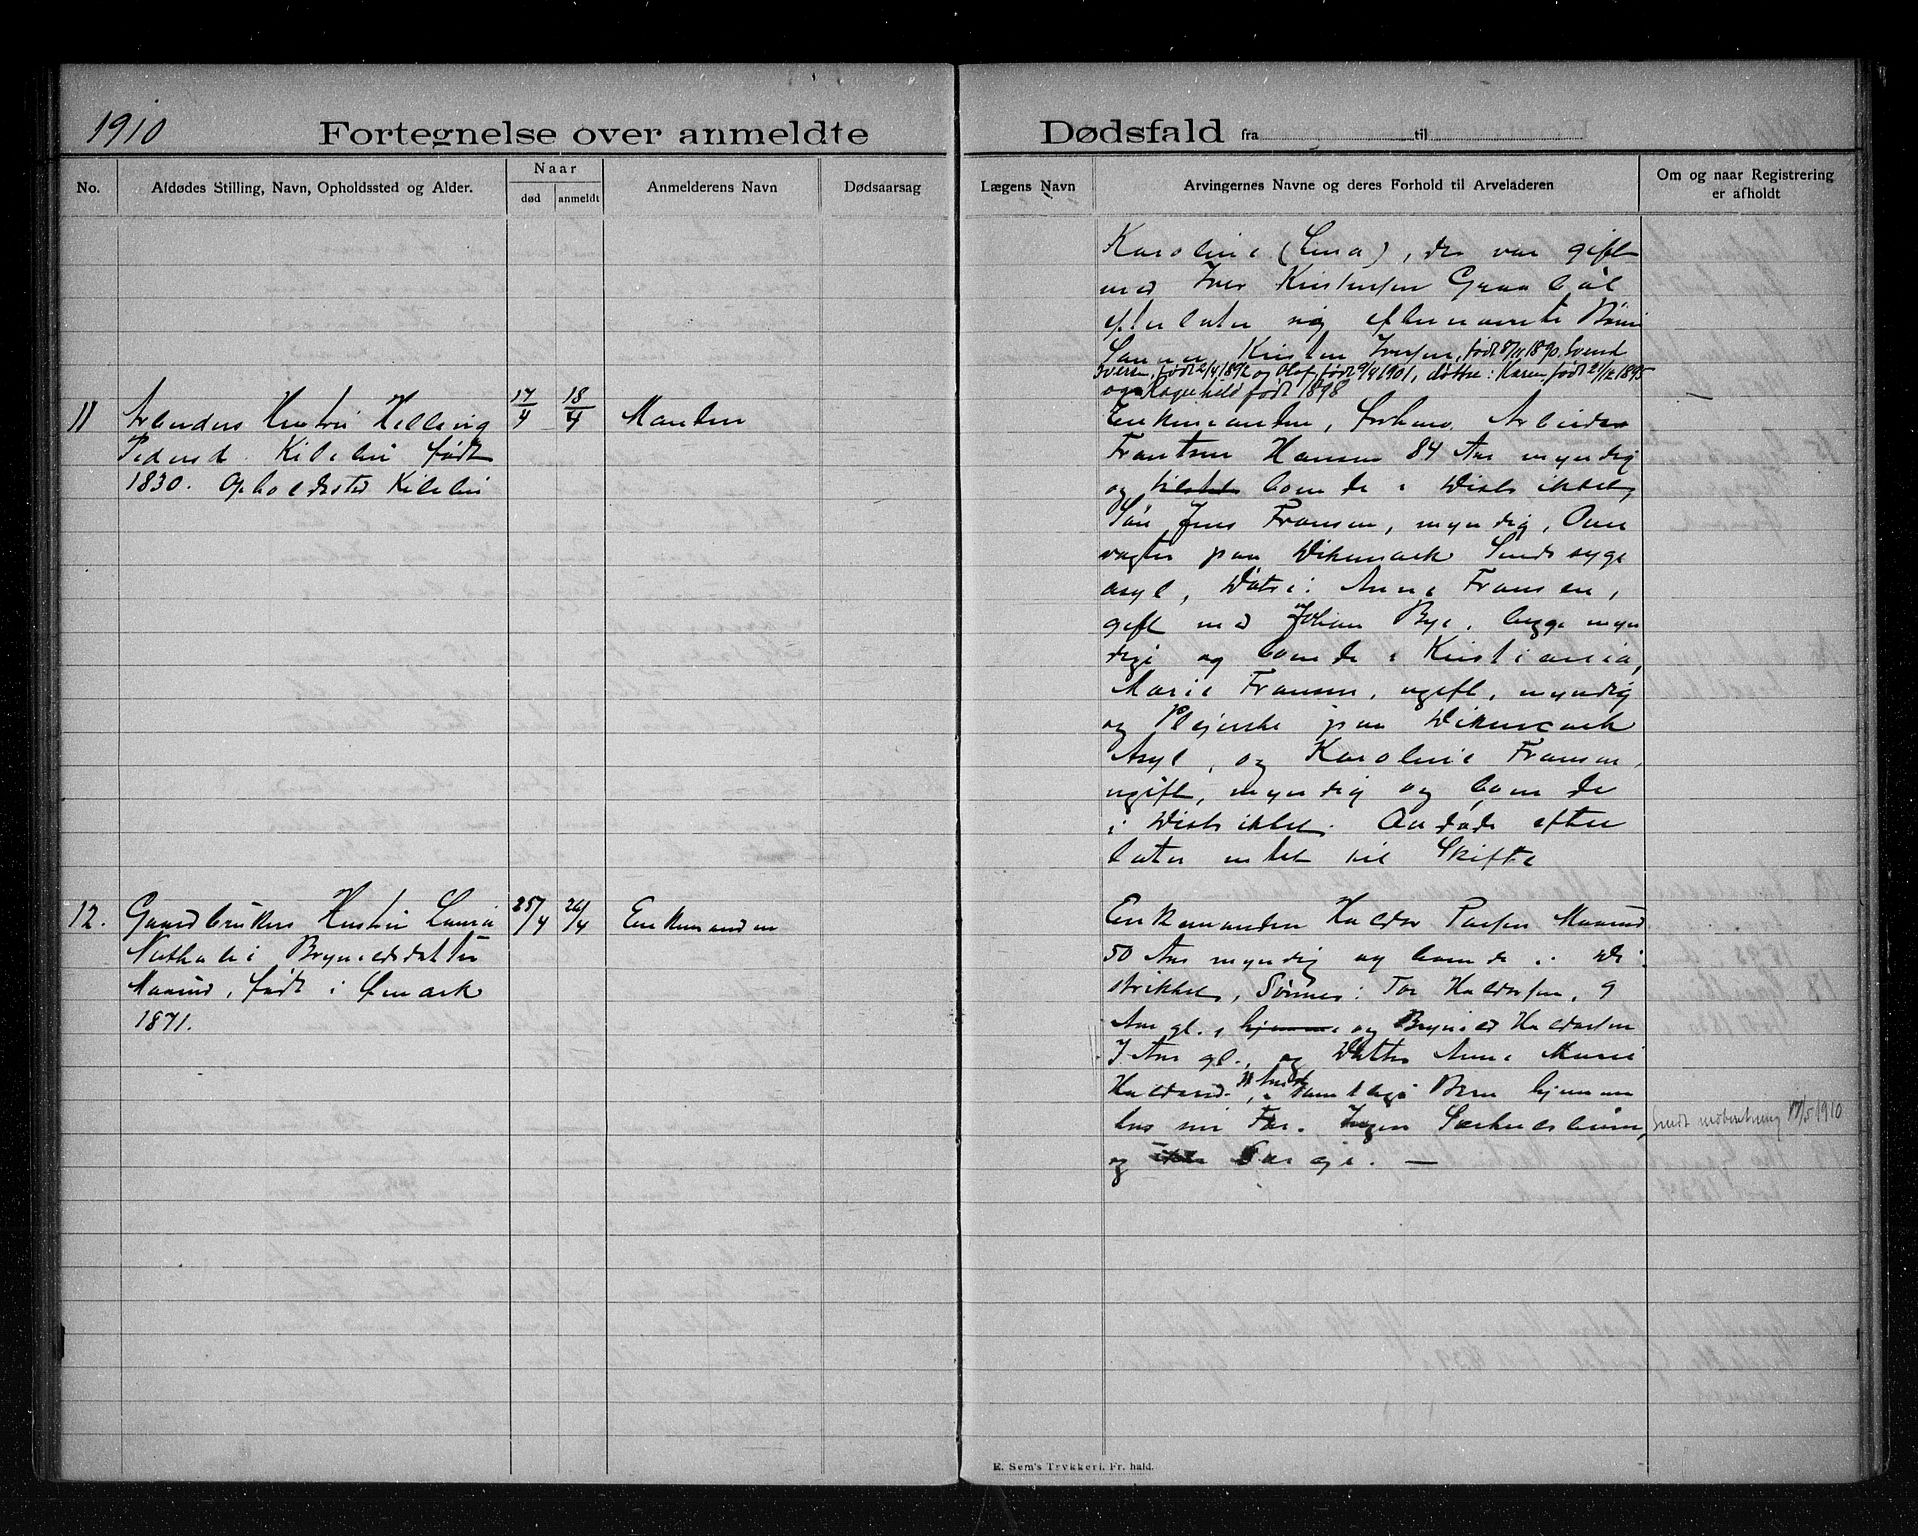 1910
Fortegnelse over anmeldte Dødsfald fra til
No.
Afdødes Stilling, Navn, Opholdssted og Alder.
Naar
død
anmeldt
Anmelderens Navn
Dødsaarsag
Lægens Navn
Arvingernes Navne og deres Forhold til Arveladeren
Om og naar Registrering
er afholdt
Karoline (Lina), der var gift
med Iver Kristensen Graabøl
efterlater sig efternævnte Børn
Sønner Kristen Iversen, født 8/11 1890, Svend
Iversen, født 2/4 1892 og Olaf, født 9/4 1901, døttre: Karen, født 21/12 1895
og Ragnhild født 1898
11
Arbeiders Hustru Helling
Pedersd. Kibelie født
1830. Opholdssted Kibelie
17/4
18/4
Manden
Enkemanden, forhenv. Arbeider
Frantsen Hansen 84 Aar myndig
og boende i Distriktet,
Søn Jens Fransen, myndig, Over
vagter paa Dikemark Sindssyge
asyl, Døtre: Anne Fransen,
gift med Johan Bye, begge myn
dige og boende i Kristiania,
Marie Fransen, ugift, myndig
og Plejerske paa Dikemark
Asyl, og Karoline Fransen,
ugift, myndig og boende
i Distriktet. Avdøde efter
later intet til Skifte
12.
Gaardbrukers Hustru Laura
Nathalie Brynildsdatter
Maarud, født i Ømark
1871.
25/4
26/4
Enkemanden
Enkemanden Haldor Paulsen Maarud
50 Aar myndig og boende i Di
striktet, Sønner: Tor Haldorsen, 9
Aar gl., hjemme og Brynild Haldorsen
7 Aar gl., og Datter Anne Marie
Haldorsd., samtlige Børn hjemme
hos sin Far. Ingen Særkuldsbørn,
og Særeje. —
Sendt indberetning 17/5 1910
E. Sem's Trykkeri, Fr. hald.